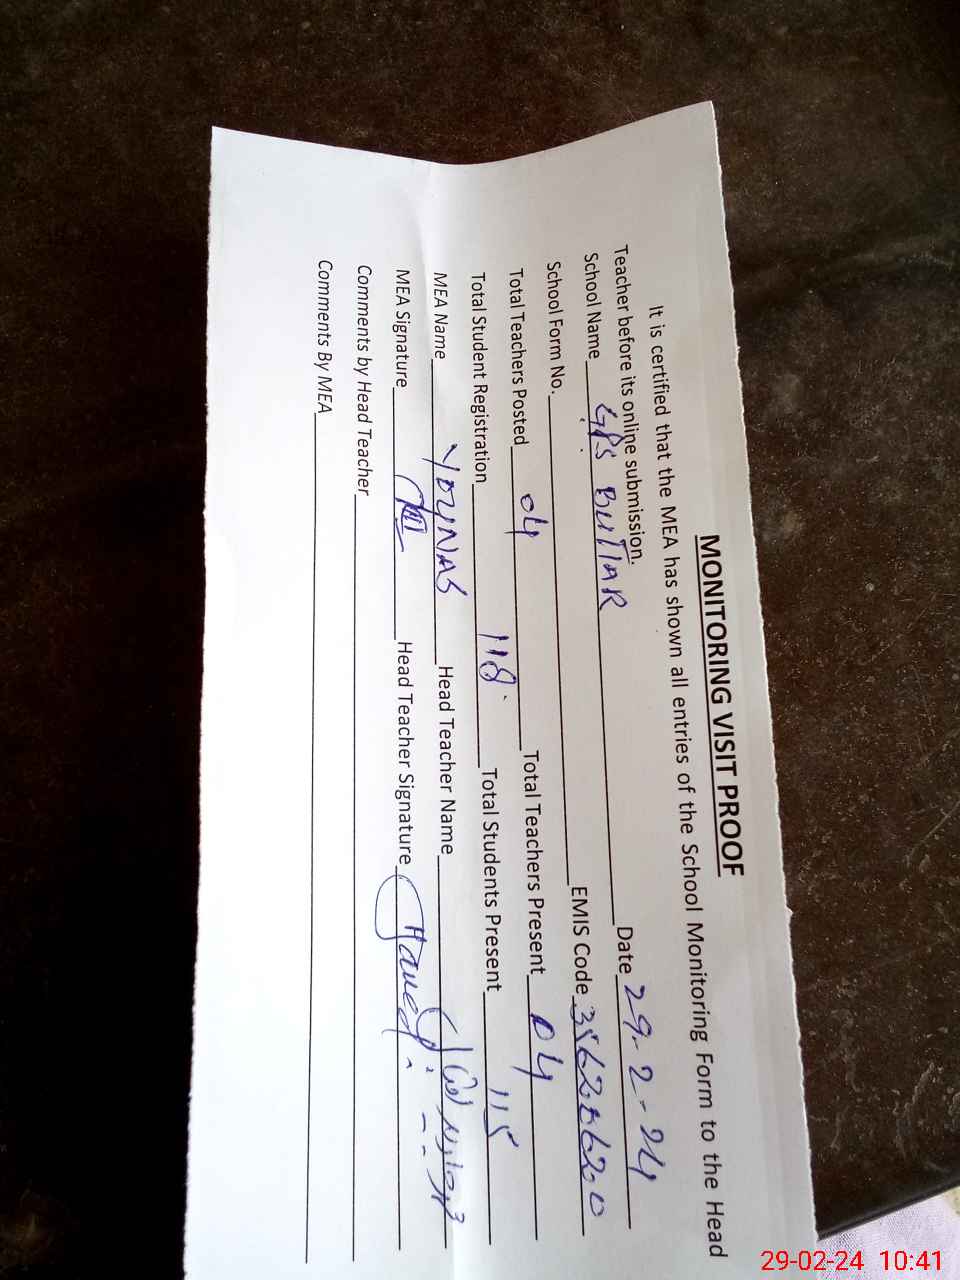 MONITORING VISIT PROOF
It is certified that the MEA has shown all entries of the School Monitoring Form to the Head
Teacher before its online submission.
School Name GPS BUTTAR Date 29-2-24
School Form No. EMIS Code
Total Teachers Posted 04 Total Teachers Present 04
Total Student Registration 118 Total Students Present 115
MEA Name YOUNAS Head Teacher Name
MEA Signature Head Teacher Signature
Comments by Head Teacher
Comments By MEA
29-02-24 10:41